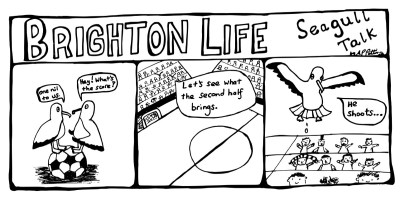 BRIGHTON LIFE
Seagull
Talk
one nil
to us.
Hey! What's
the score?
Let's see what
the second half
brings.
He
shoots...